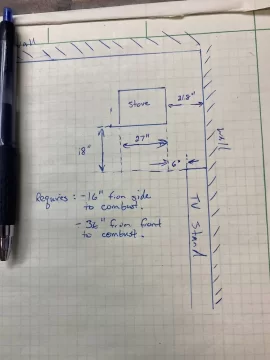 wall
Stove
21.5"
27"
18"
6"
wall
TV Stand
Requires : - 16" from side
to combust.
- 36" from front
to combust.